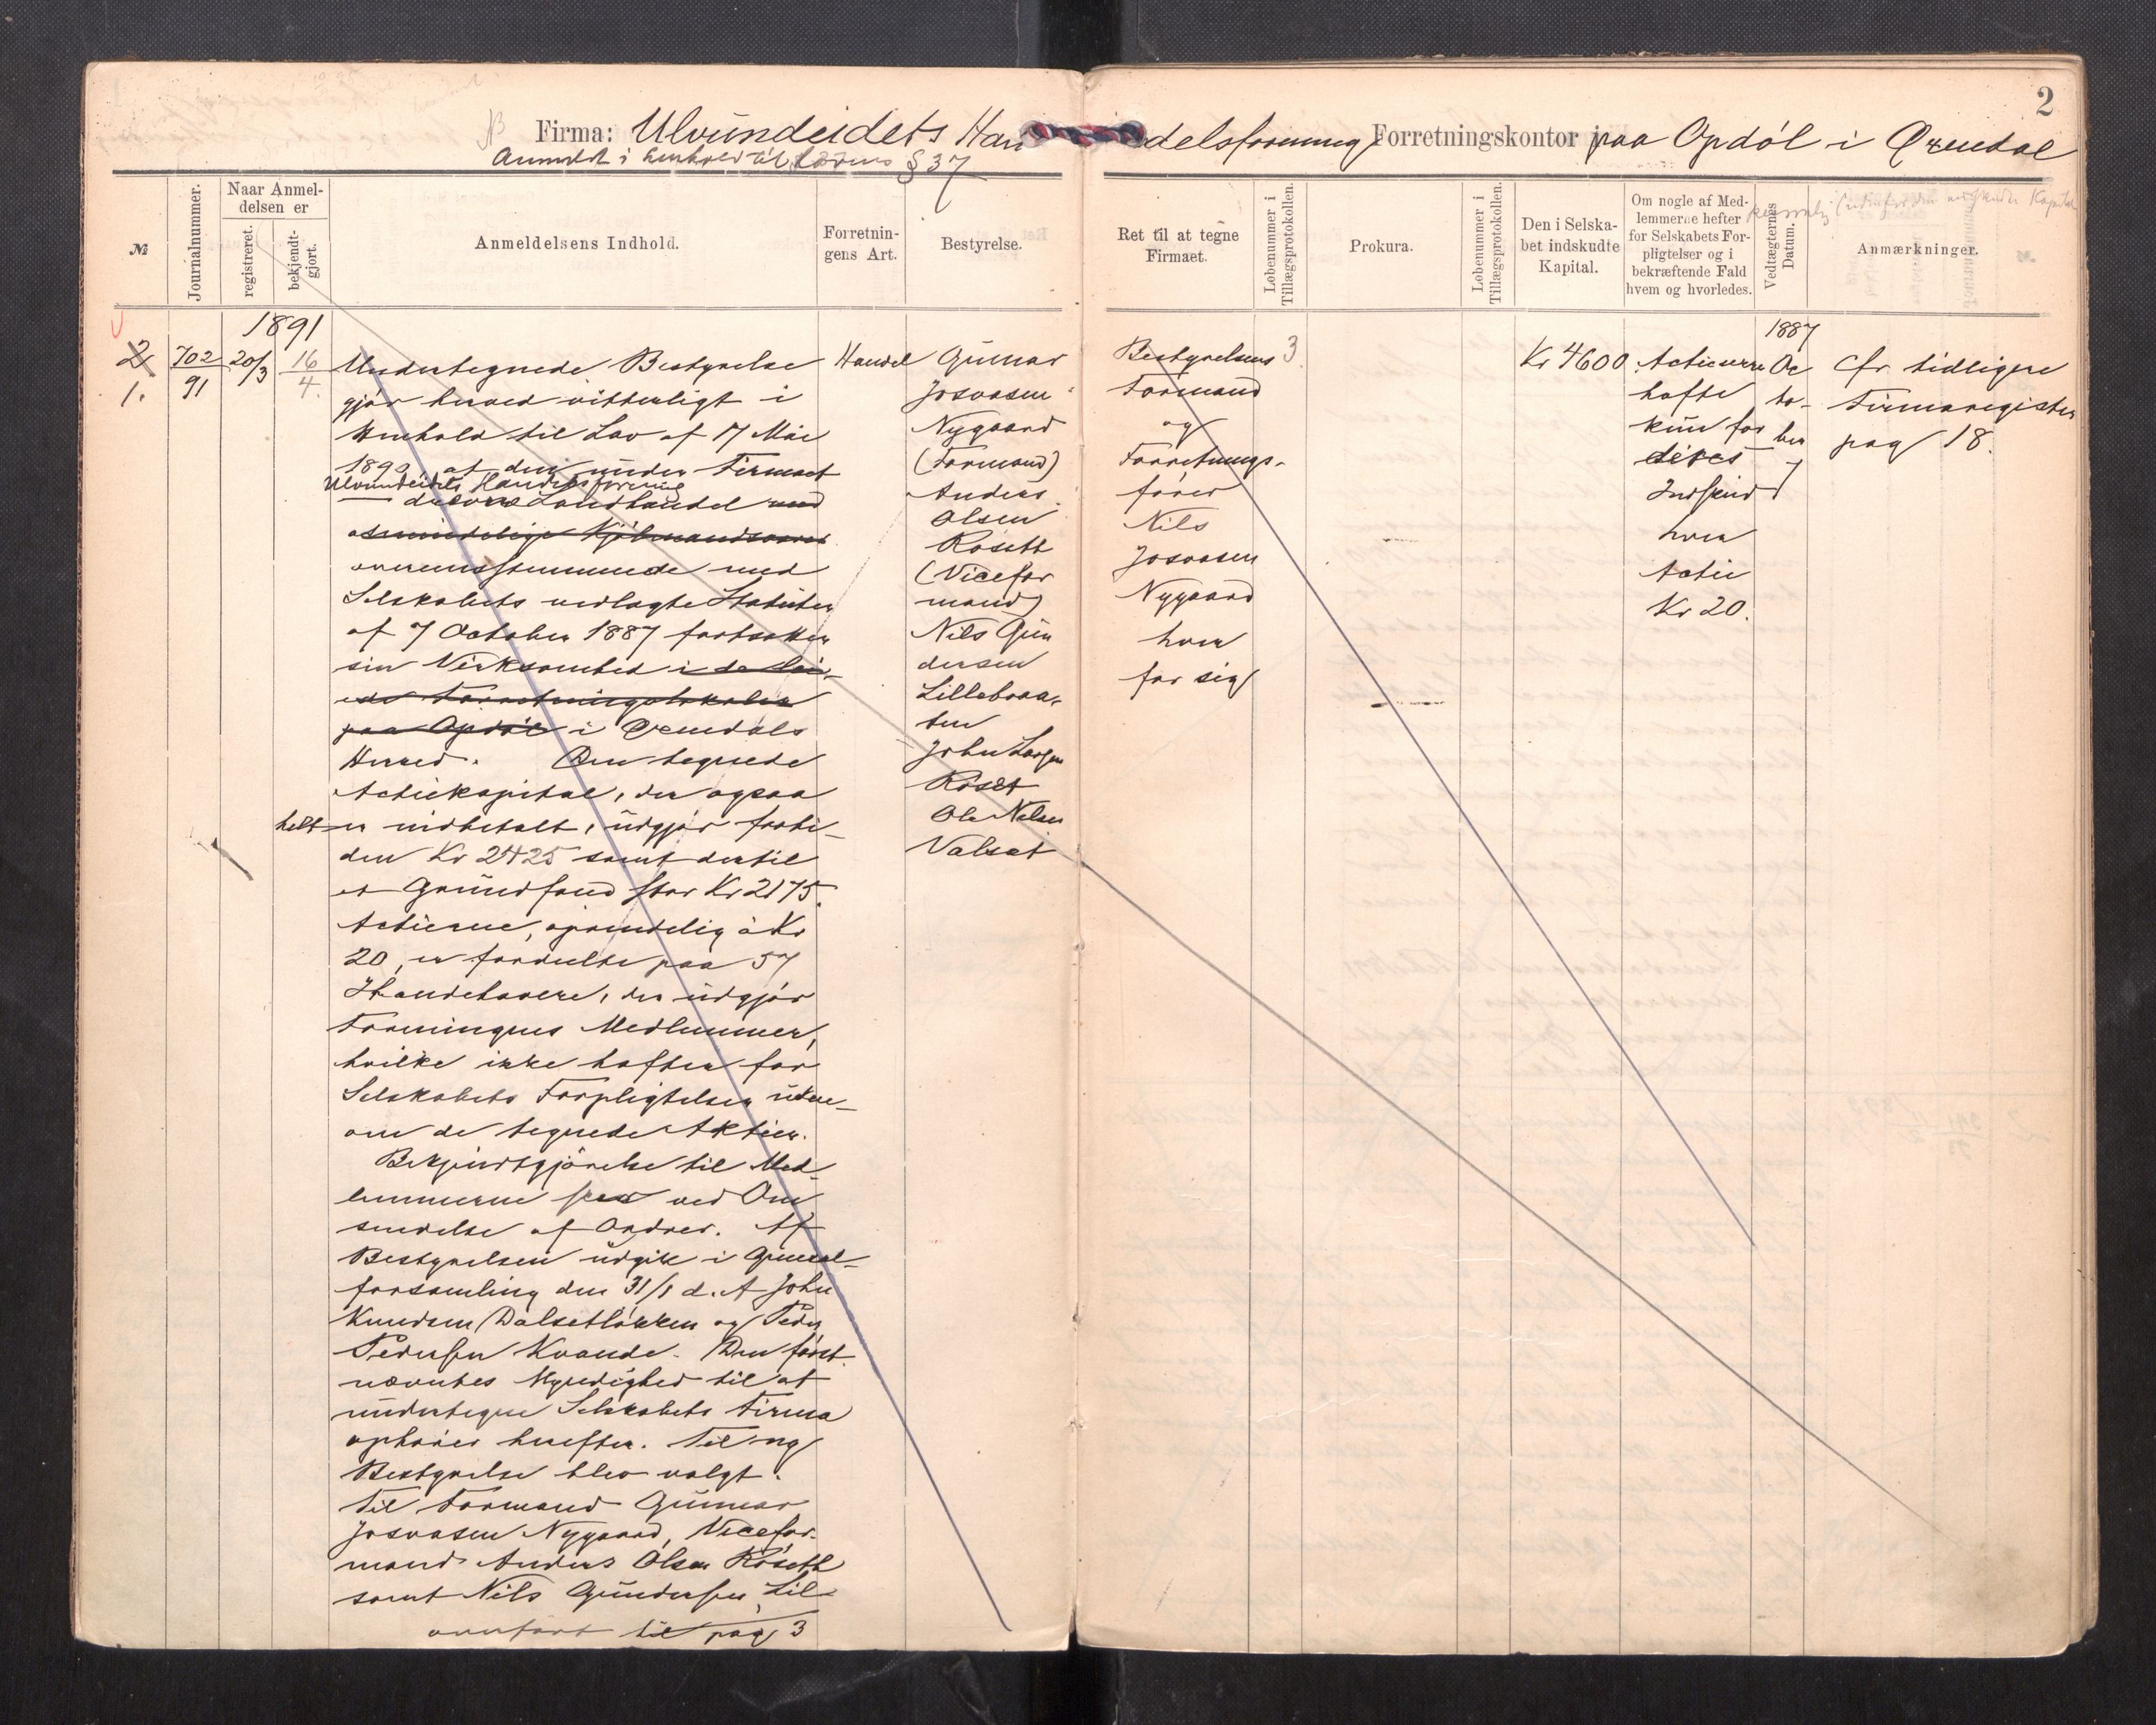 2
Firma: Ulvundeidets Handelsforening Forretningskontor paa Opdöl i Øxendal
Anmeldt i Henhold til Lovens § 37
№
Journalnummer.
Naar Anmel-
delsen er
registreret.
bekjendt-
gjort.
Anmeldelsens Indhold.
Forretnin-
gens Art.
Bestyrelse.
Ret til at tegne
Firmaet.
Løbenummer i
Tillægsprotokollen.
Prokura.
Løbenummer i
Tillægsprotokollen.
Den i Selska-
bet indskudte
Kapital.
Om nogle af Med-
lemmerne hefter
for Selskabets For-
pligtelser og i
bekræftende Fald
hvem og hvorledes.
Vedtægternes
Datum.
Anmærkninger.
1891
2
1.
702
91
20/3
16
4.
Undertegnede Bestyrelse
gjör herved vitterligt i
Henhold til Lov af 17 Mai
1890, at den under Firmaet
Ulvundeidets Handelsforening
drevne Landhandel med
almindelige Kjöbmandsvarer
overensstemmende med
Selskabets vedlagte Statuter
af 7 October 1887 fortsætter
sin Virksomhed i de lei-
ede Forretningslokaler
paa Opdöl i Öxendals
Herred. Den tegnede
Actiekapital, der ogsaa
helt er indbetalt, udgjör forti-
den Kr 2425 samt dertil
et Grundfond stor Kr 2175.
Actierne, oprindelig à Kr
20, er fordelte paa 57
Ihændehavere, der udgjör
Foreningens Medlemmer,
hvilke ikke hæfter for
Selskabets Forpligtelser uden-
om de tegnede Aktier.
Bekjendtgjörelse til Med-
lemmerne sker ved Om
sendelse af Ordrer. Af
Bestyrelsen udgik i General-
forsamling den 31/1 d. A John
Knudsen Dalsetlökken og Peder
Pedersen Kvande. Den först
nævntes Myndighed til at
undertegne Selskabets Firma
ophörer herefter. Til ny
Bestyrelse blev valgt.
Til Formand Gunnar
Josvasen Nygaard, Vicefor-
mand Anders Olsen Rösett
samt Nils Gundersen Lil-
overfört til pag 3
Handel
Gunnar
Josvasen
Nygaard
(Formand)
Anders
Olsen
Rösett
(Vicefor
mand)
Nils Gun
dersen
Lillebraa-
ten
John Larsen
Röset
Ole Nilsen
Valset
Bestyrelsens 3
Formand
og
Forretnings-
förer
Nils
Josvasen
Nygaard
hver
for sig
Kr 4600
Actieeierne
hæfte
kun for
deres
Indskud
hver
Actie
Kr 20.
1887
Oc
to-
ber
7
Cfr. tidligere
Firmaregister
pag 18.